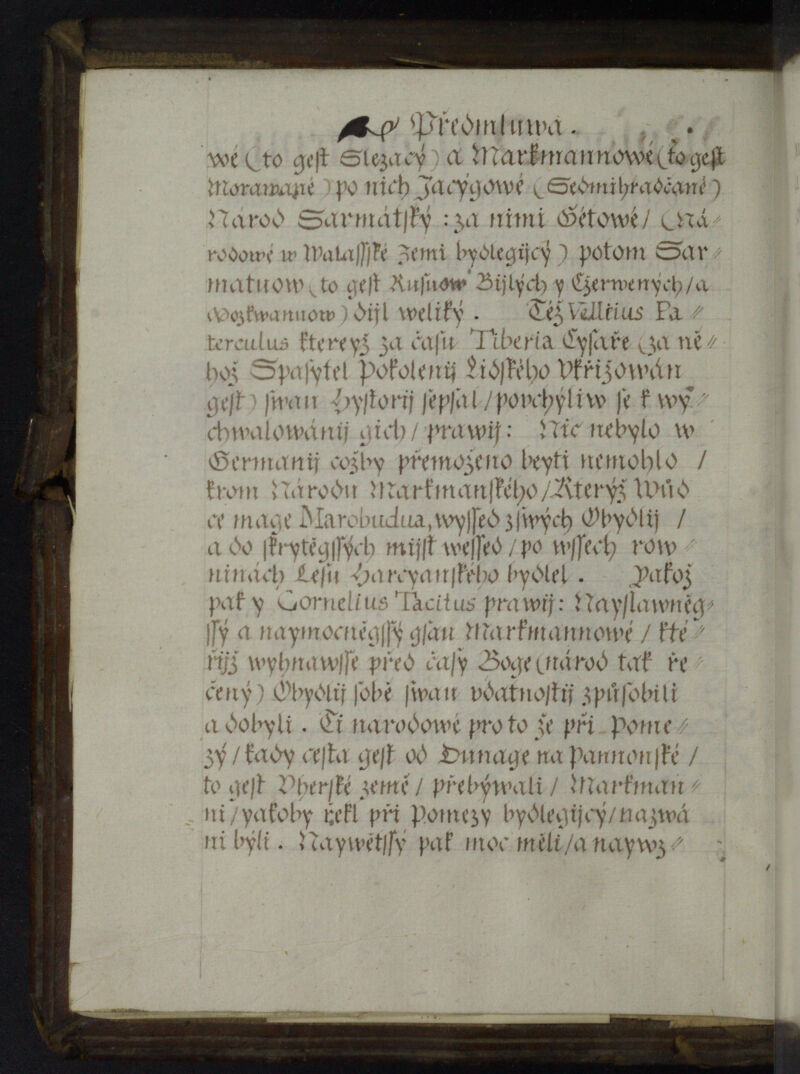 Předmluwa.
wé (to gest Slezacý) a Markmannowé (to gest
Morawané) po nich Jacýgowé (Sedmihradčané)
Národ Sarmátský: za nimi Gétowé / (ná⸗
rodowé w Walašské Zemi bydlegijcý) potom Sar⸗
matuow (to gest Rusuow Bijlých y Czerwených / a
Mozkwanuow) dijl weliký. Též Vellrius Pa⸗
terculus ktereyž za času Tiberia Cysaře (za ně⸗
hož Spasytel Pokolenij Lidského Vkřižowán
gest) swau Hystorij sepsal / powchýliw se k wy⸗
chwalowánij gich / prawij: Nic nebylo w
Germanij cožby přemoženo beyti nemohlo /
krom Národu Markmanského / Kterýž Wůd
ce mage Marobudua, wyssed z swých Obydlij /
a do skrytěgssých mijst wessed / po wssech row⸗
ninách Lesu Harcyanského bydlel. Pakož
pak y Cornelius Tacitus prawij: Nayslawněg⸗
ssý a naymocněgssý gsau Markmannowé / kte⸗
řijž wyhnawsse před časy Boge (národ tak ře⸗
čený) Obydlij sobě swau vdatnostij způsobili
a dobyli. Ti narodowé proto že při Pome⸗
zý / kady cesta gest od Dunage na Pannonské /
to gest Vherské zemé / přebýwali / Markman⸗
ni / yakoby řekl při Pomezy bydlegijcý / nazwá
ni býli. Naywětssý pak moc měli / a naywz⸗